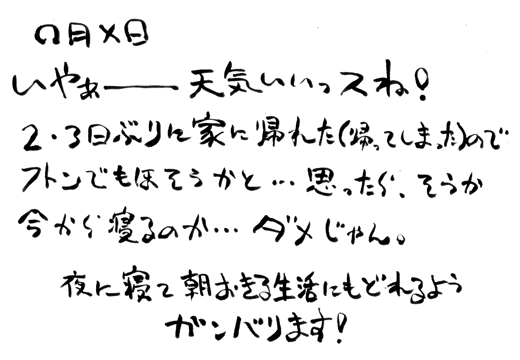 〇月×日
いやぁ――天気いいっスね!
2・3日ぶりに家に帰れた(帰ってしまった)ので
フトンでもほそうかと…思ったら、そうか
今から寝るのか…ダメじゃん。
夜に寝て朝おきる生活にもどれるよう
ガンバリます!